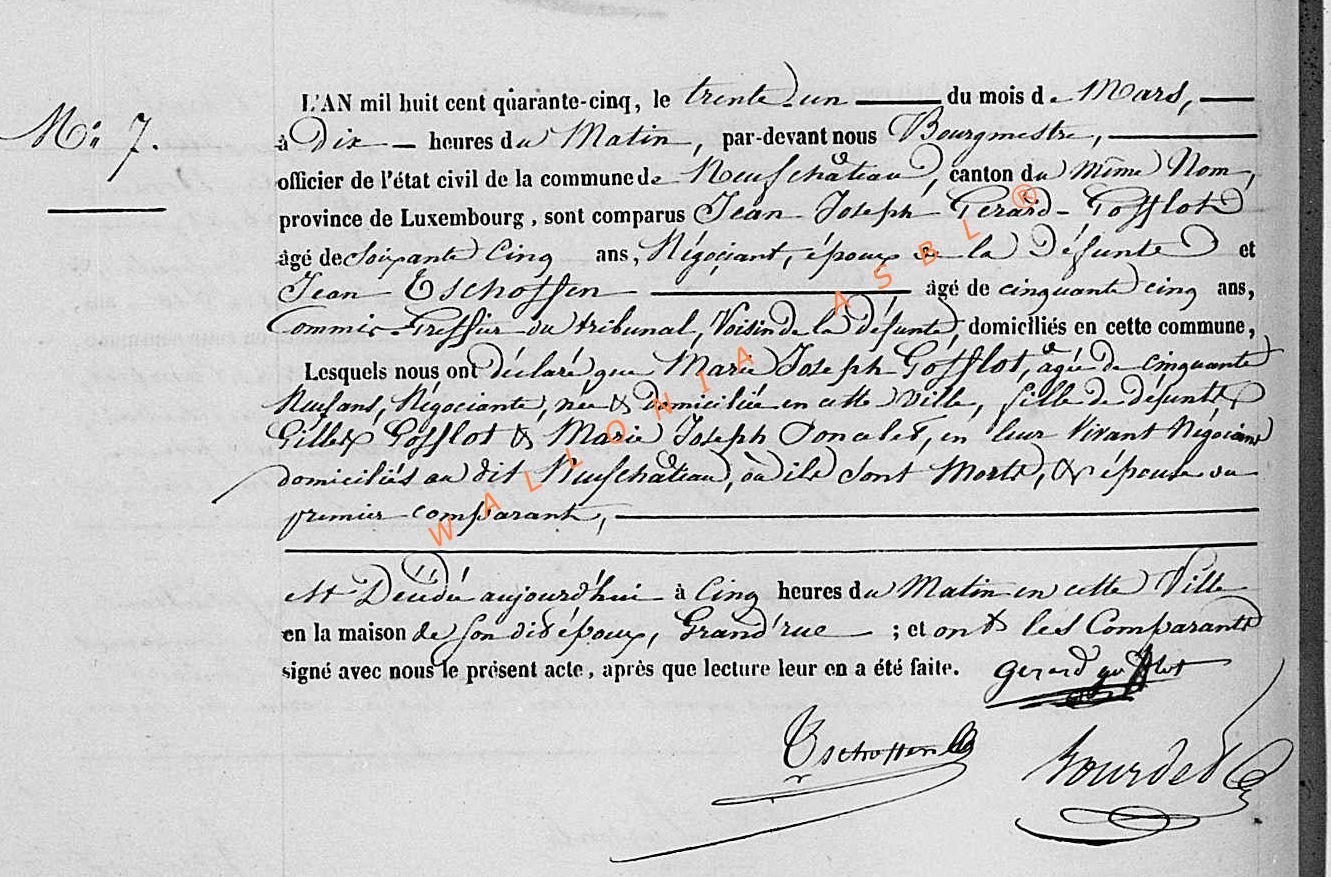 N° 7.
L'AN mil huit cent quarante-cinq, le trente-un du mois de Mars,
à Dix heures du Matin, par-devant nous Bourgmestre,
officier de l'état civil de la commune de Neufchâteau, canton du même Nom,
province de Luxembourg, sont comparus Jean Joseph Gerard-Gofflot
âgé de Soixante Cinq ans, Négociant, époux de la Défunte et
Jean Tschoffen âgé de cinquante cinq ans,
Commis-Greffier du tribunal, Voisin de la défunte, domiciliés en cette commune,
Lesquels nous ont déclaré que Marie Joseph Gofflot, agée de cinquante
Neuf ans, Négociante, née & domiciliée en cette Ville, fille de défunts
Gilles Gofflot & Marie Joseph Poncelet, en leur Vivant Négociants
domiciliés au dit Neufchâteau, où ils sont Morts, & épouse du
premier comparant,
est Décédée aujourd'hui à Cinq heures du Matin en cette Ville
en la maison de son dit époux, Grand'rue ; et ont les Comparants
signé avec nous le présent acte, après que lecture leur en a été faite. gerard gofflot
Tschoffen
Bourdet
WALLONIA ASBL ®